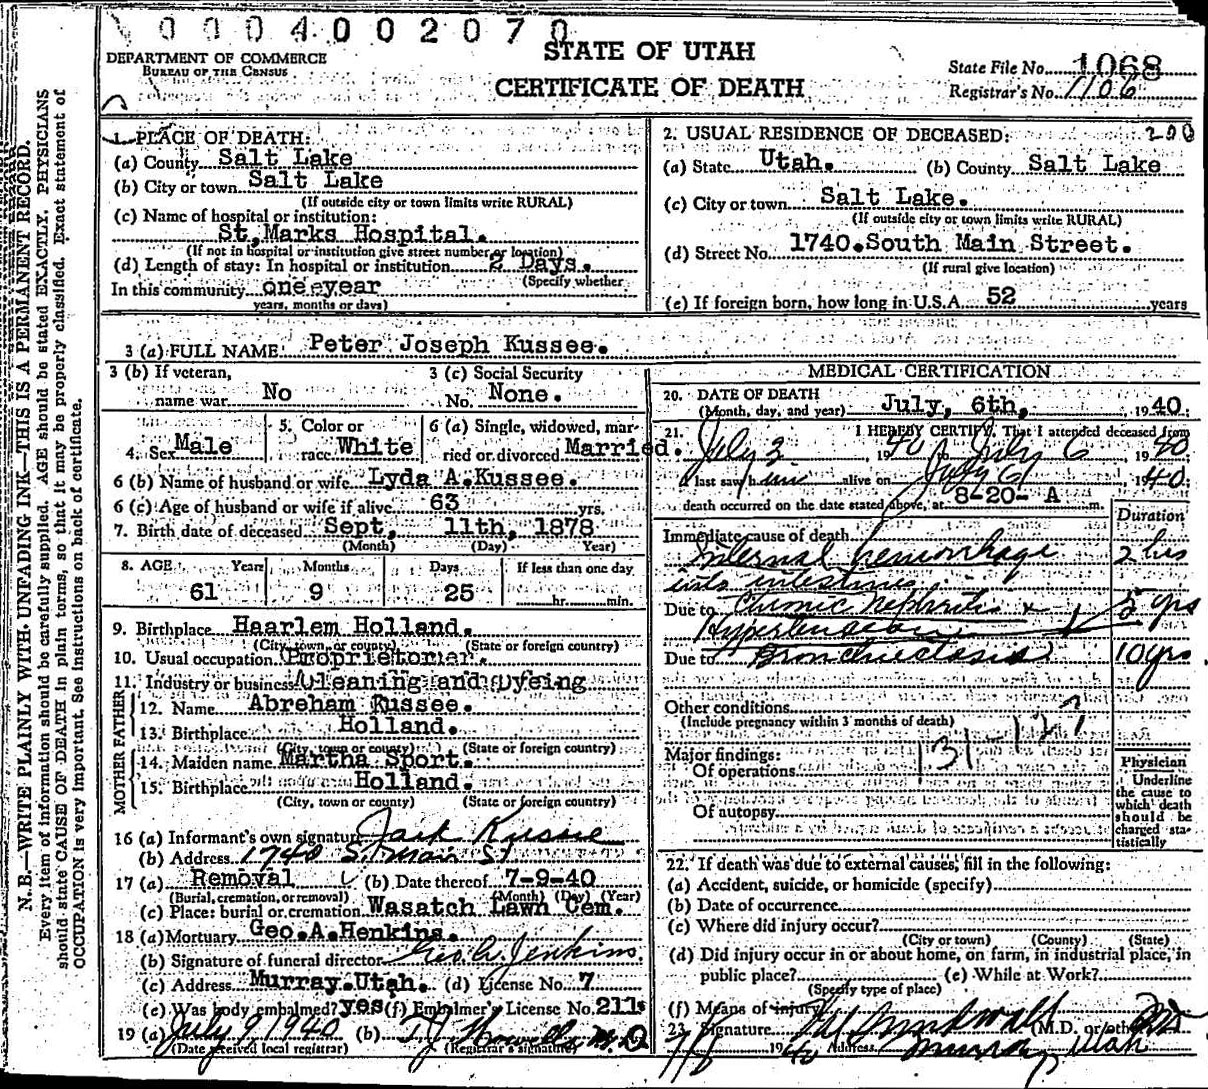 0004002070
STATE OF UTAH
CERTIFICATE OF DEATH
DEPARTMENT OF COMMERCE
BUREAU OF THE CENSUS
State File No. 1068
Registrar's No. 1106
N.B.—WRITE PLAINLY WITH UNFADING INK—THIS IS A PERMANENT RECORD.
Every item of information should be carefully supplied. AGE should be stated EXACTLY. PHYSICIANS
should state CAUSE OF DEATH in plain terms, so that it may be properly classified. Exact statement of
OCCUPATION is very important. See instructions on back of certificate.
1. PLACE OF DEATH:
(a) County Salt Lake
(b) City or town Salt Lake
(If outside city or town limits write RURAL)
(c) Name of hospital or institution:
St,Marks Hospital.
(If not in hospital or institution give street number or location)
(d) Length of stay: In hospital or institution 2 Days.
(Specify whether
In this community one year
years, months or days)
2. USUAL RESIDENCE OF DECEASED: 200
(a) State Utah. (b) County Salt Lake
(c) City or town Salt Lake.
(If outside city or town limits write RURAL)
(d) Street No. 1740.South Main Street.
(If rural give location)
(e) If foreign born, how long in U.S.A. 52 years
3 (a) FULL NAME Peter Joseph Kussee.
3 (b) If veteran, name war No
3 (c) Social Security No. None.
4. Sex Male
5. Color or race White
6 (a) Single, widowed, married or divorced Married.
6 (b) Name of husband or wife Lyda A.Kussee.
6 (c) Age of husband or wife if alive 63 yrs.
7. Birth date of deceased Sept, 11th, 1878
(Month) (Day) Year)
8. AGE Years Months Days If less than one day
61 9 25 hr. min.
9. Birthplace Haarlem Holland.
(City, town, or county) (State or foreign country)
10. Usual occupation Proprietor.
11. Industry or business Cleaning and Dyeing
FATHER
12. Name Abreham Kussee.
13. Birthplace Holland.
(City, town or county) (State or foreign country)
MOTHER
14. Maiden name Martha Sport.
15. Birthplace Holland.
(City, town or county) (State or foreign country)
16 (a) Informant's own signature Jack Kussee
(b) Address 1740 S. Main St
17 (a) Removal (b) Date thereof 7-9-40
(Burial, cremation, or removal) (Month) (Day) (Year)
(c) Place: burial or cremation Wasatch Lawn Cem.
18 (a) Mortuary Geo.A.Henkins.
(b) Signature of funeral director Geo. A. Jenkins.
(c) Address Murray.Utah. (d) License No. 7
(e) Was body embalmed? yes (f) Embalmer's License No. 211
19 (a) July 9 1940 (b) T J Howells M.D
(Date received local registrar) (Registrar's signature)
MEDICAL CERTIFICATION
20. DATE OF DEATH
(Month, day, and year) July, 6th, 1940.
21. I HEREBY CERTIFY, That I attended deceased from
July 3 1940 to July 6 1940.
I last saw him alive on July 6 1940.
death occurred on the date stated above, at 8-20- A m.
Duration
Immediate cause of death
Internal hemorrhage 2 hrs
into intestines
Due to Chronic Nephritis + 5 yrs
Hypertension
Due to Bronchiectasis 10 yrs
Other conditions
(Include pregnancy within 3 months of death)
131-
Major findings:
Of operations
Of autopsy
Physician
Underline
the cause to
which death
should be
charged sta-
tistically
22. If death was due to external causes, fill in the following:
(a) Accident, suicide, or homicide (specify)
(b) Date of occurrence
(c) Where did injury occur?
(City or town) (County) (State)
(d) Did injury occur in or about home, on farm, in industrial place, in
public place? (e) While at Work?
(Specify type of place)
(f) Means of injury
23. Signature (M.D. or other)
1940 Address Murray, Utah